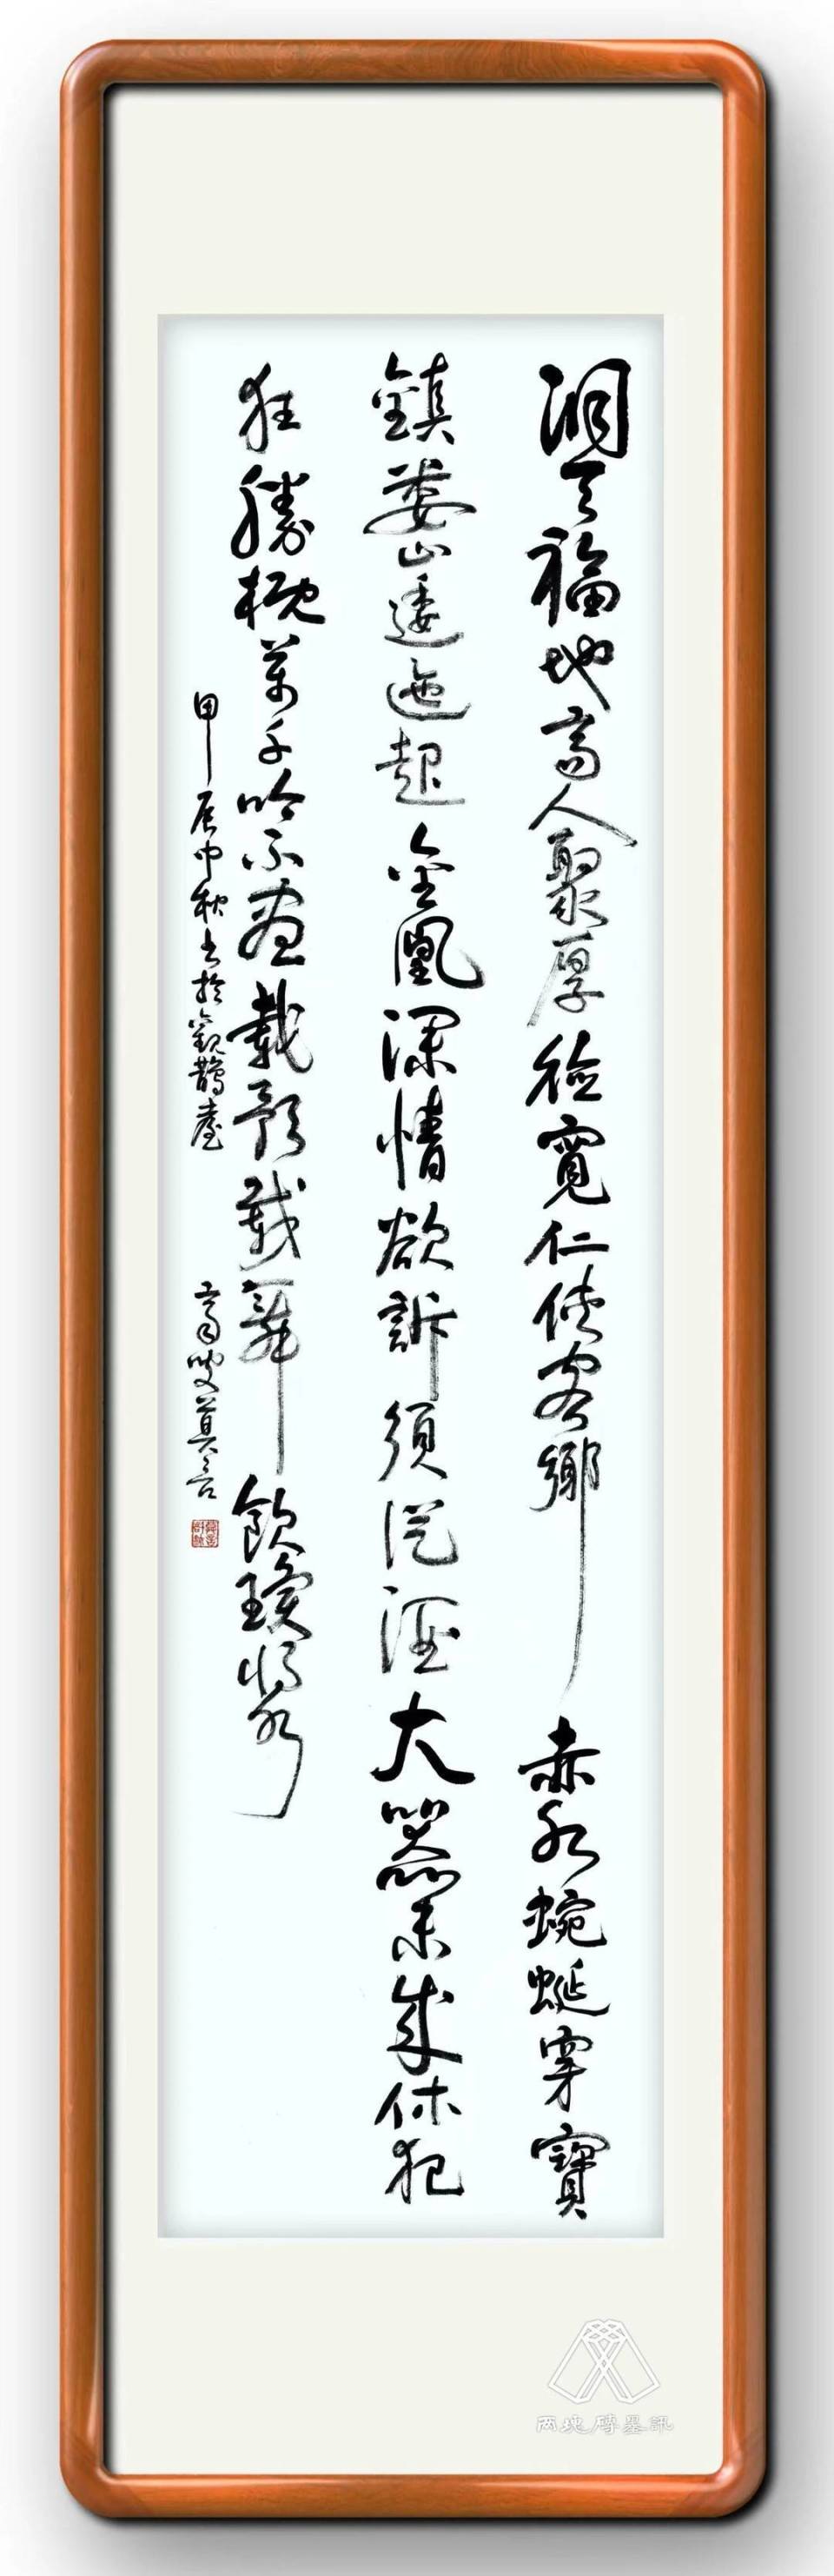 洞天福地高人聚厚德寬仁俠客鄉赤水蜿蜒穿寶
鎮婁山逶迤起金凰深情欲訴須從酒大器未成休犯
狂勝概萬千吟不盡載歌載舞飲瓊漿
甲辰中秋書於觀鵲臺
高叟莫言